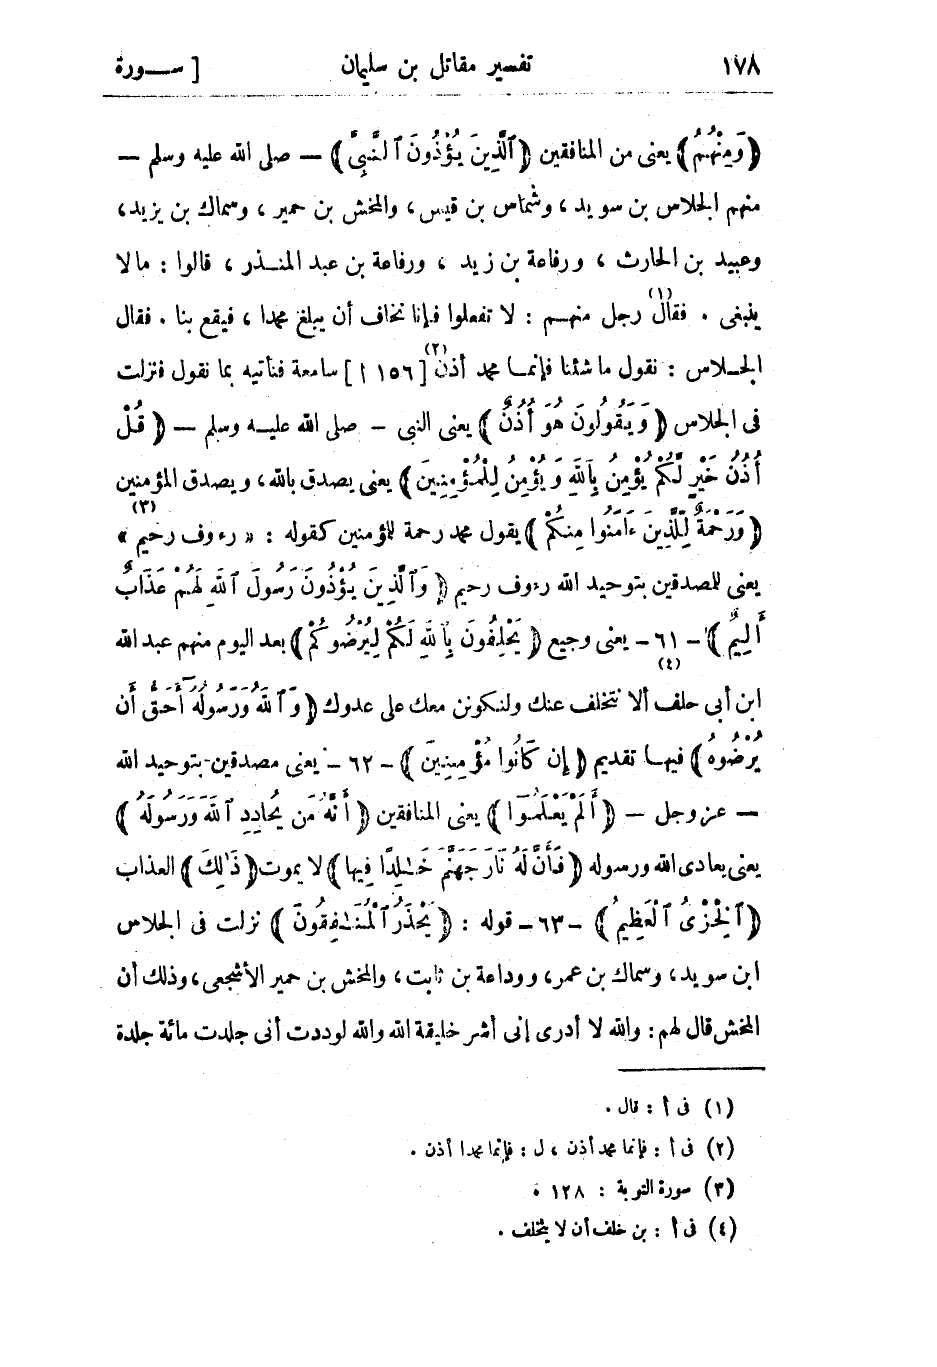 ١٧٨ تفسير مقاتل بن سليمان [ ســورة
﴿وَمِنْهُمُ﴾ يعنى من المنافقين ﴿ٱلَّذِينَ يُؤْذُونَ ٱلنَّبِىَّ﴾ — صلى الله عليه وسلم —
منهم الجلاس بن سويد ، وشماس بن قيس ، والمخش بن حمير ، وسماك بن يزيد ،
وعبيد بن الحارث ، ورفاعة بن زيد ، ورفاعة بن عبد المنـذر ، قالوا : مالا
ينبغى . فقال (١) رجل منهـم : لا تفعلوا فإنا نخاف أن يبلغ محمدا ، فيقع بنا . فقال
الجـلاس : نقول ما شئنا فإنمـا محمد أذن (٢) [ ١٥٦ أ ] سامعة فنأتيه بما نقول فنزلت
فى الجلاس ﴿وَيَقُولُونَ هُوَ أُذُنٌ﴾ يعنى النبى — صلى الله عليـه وسلم — ﴿قُلْ
أُذُنُ خَيْرٍ لَّكُمْ يُؤْمِنُ بِٱللَّهِ وَيُؤْمِنُ لِلْمُؤْمِنِينَ﴾ يعنى يصدق بالله ، ويصدق المؤمنين
﴿وَرَحْمَةٌ لِّلَّذِينَ ءَامَنُوا مِنكُمْ﴾ يقول محمد رحمة للمؤمنين كقوله : « رءوف رحيم » (٣)
يعنى للمصدقين بتوحيد الله رءوف رحيم ﴿وَٱلَّذِينَ يُؤْذُونَ رَسُولَ ٱللَّهِ لَهُمْ عَذَابٌ
أَلِيمٌ﴾ - ٦١ - يعنى وجيع ﴿يَحْلِفُونَ بِٱللَّهِ لَكُمْ لِيُرْضُوكُمْ﴾ بعد اليوم منهم عبد الله
ابن أبى حلف (٤) ألا نتخلف عنك ولنكونن معك على عدوك ﴿وَٱللَّهُ وَرَسُولُهُ أَحَقُّ أَن
يُرْضُوهُ﴾ فيهـا تقديم ﴿إِن كَانُوا مُؤْمِنِينَ﴾ - ٦٢ - يعنى مصدقين بتوحيد الله
— عز وجل — ﴿أَلَمْ يَعْلَمُوٓا﴾ يعنى المنافقين ﴿أَنَّهُ مَن يُحَادِدِ ٱللَّهَ وَرَسُولَهُ﴾
يعنى يعادى الله ورسوله ﴿فَأَنَّ لَهُ نَارَ جَهَنَّمَ خَـٰلِدًا فِيهَا﴾ لا يموت ﴿ذَٰلِكَ﴾ العذاب
﴿ٱلْخِزْىُ ٱلْعَظِيمُ﴾ - ٦٣ - قوله : ﴿يَحْذَرُ ٱلْمُنَـٰفِقُونَ﴾ نزلت فى الجلاس
ابن سويد ، وسماك بن عمر ، ووداعة بن ثابت ، والمخش بن حمير الأشجعى ، وذلك أن
المخش قال لهم : والله لا أدرى إنى أشر خليقة الله والله لوددت أنى جلدت مائة جلدة
(١) فى أ : قال .
(٢) فى أ : فإنما محمد أذن ، ل : فإنما محمدا أذن .
(٣) سورة التوبة : ١٢٨ .
(٤) فى أ : بن خلف أن لا يتخلف .